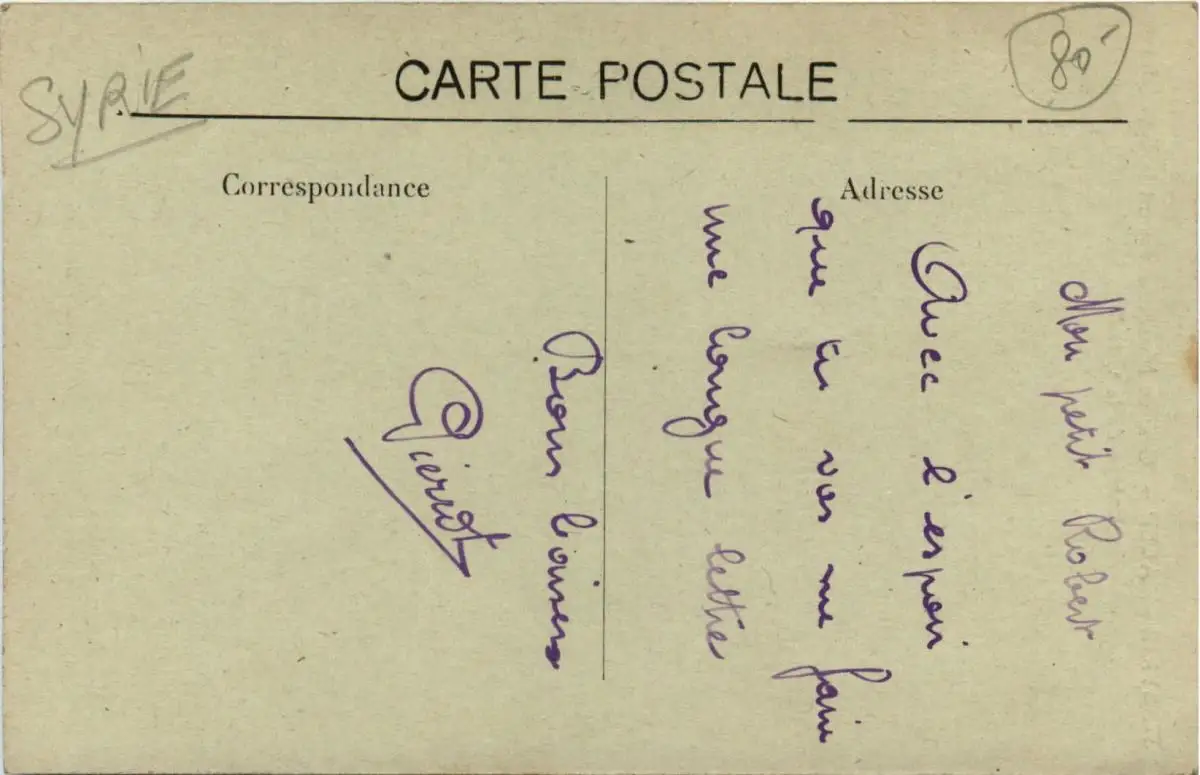 SYRIE
CARTE POSTALE
80
Correspondance
Adresse
Mon petit Robert
Avec l'espoir
que tu vas me faire
une longue lettre
Bons baisers
Pierrot